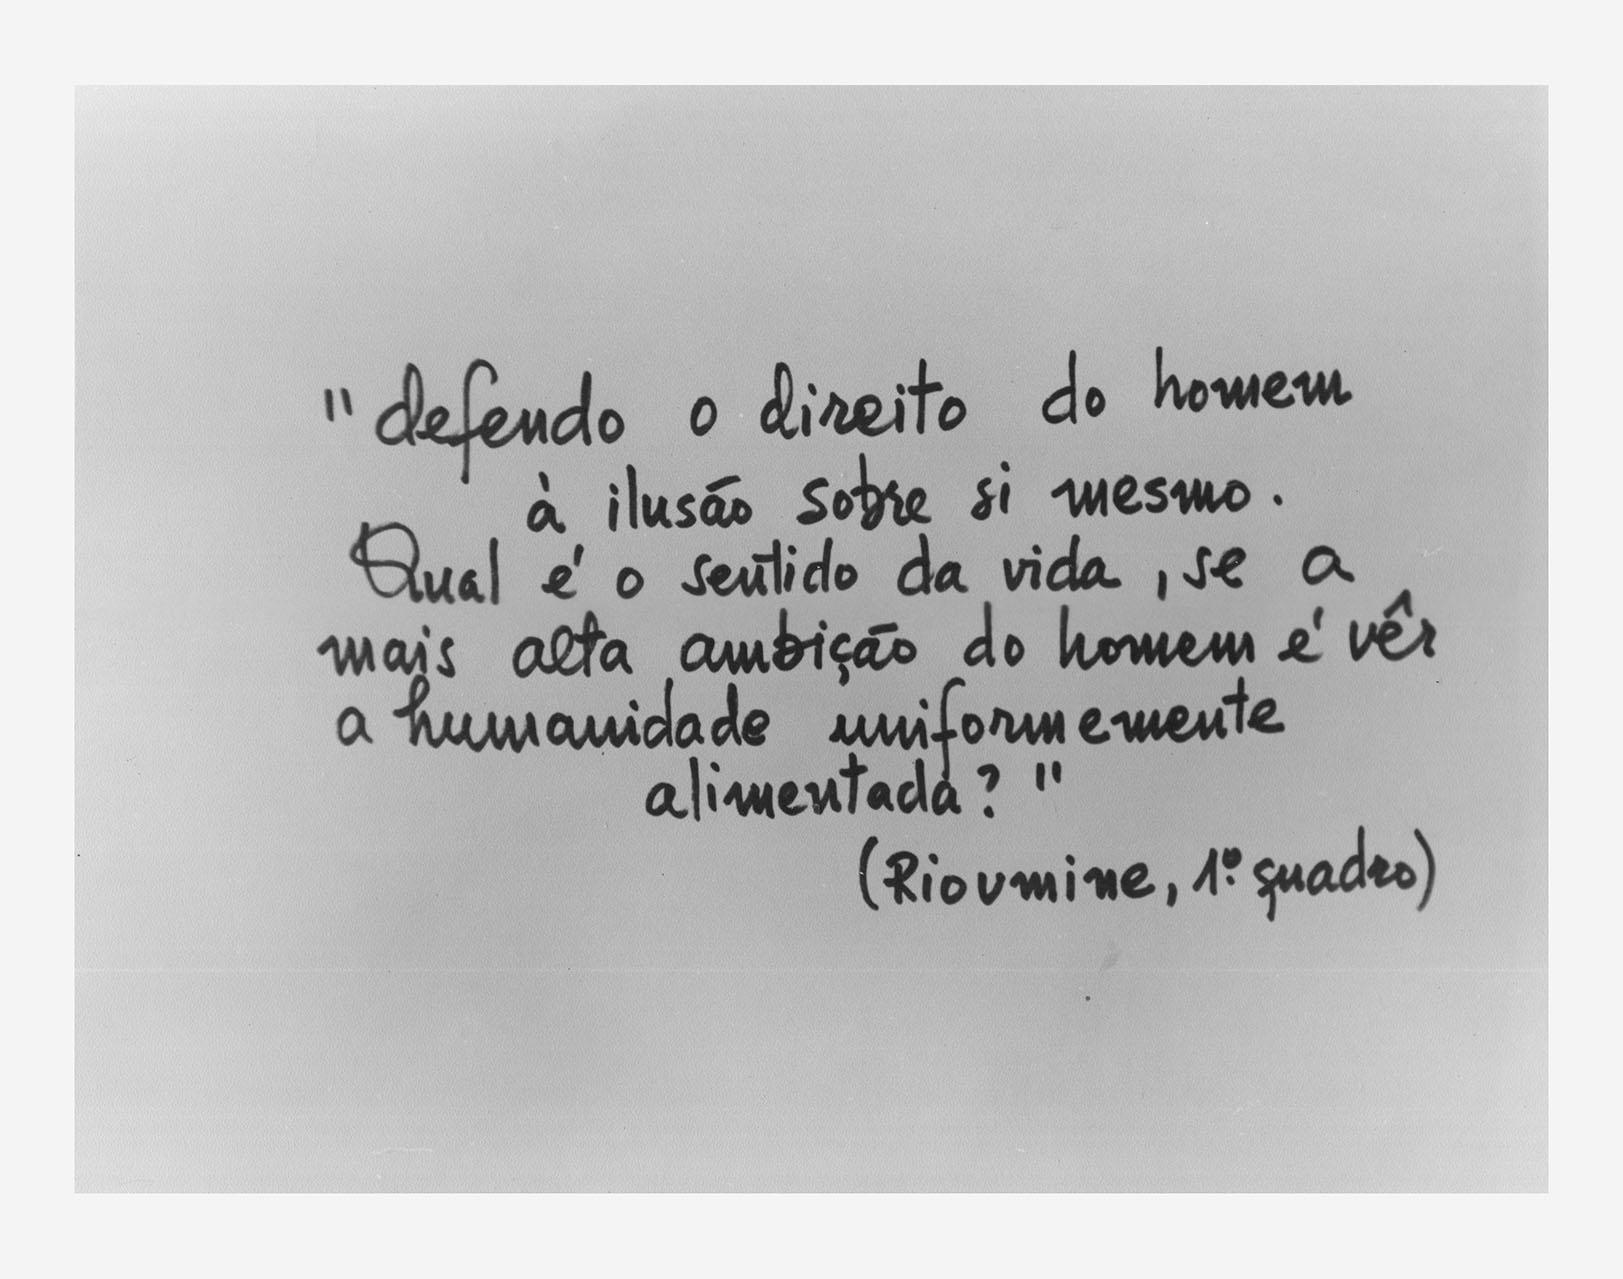 "defendo o direito do homem
à ilusão sobre si mesmo.
Qual é o sentido da vida, se a
mais alta ambição do homem é vêr
a humanidade uniformemente
alimentada? "
(Rioumine, 1º quadro)